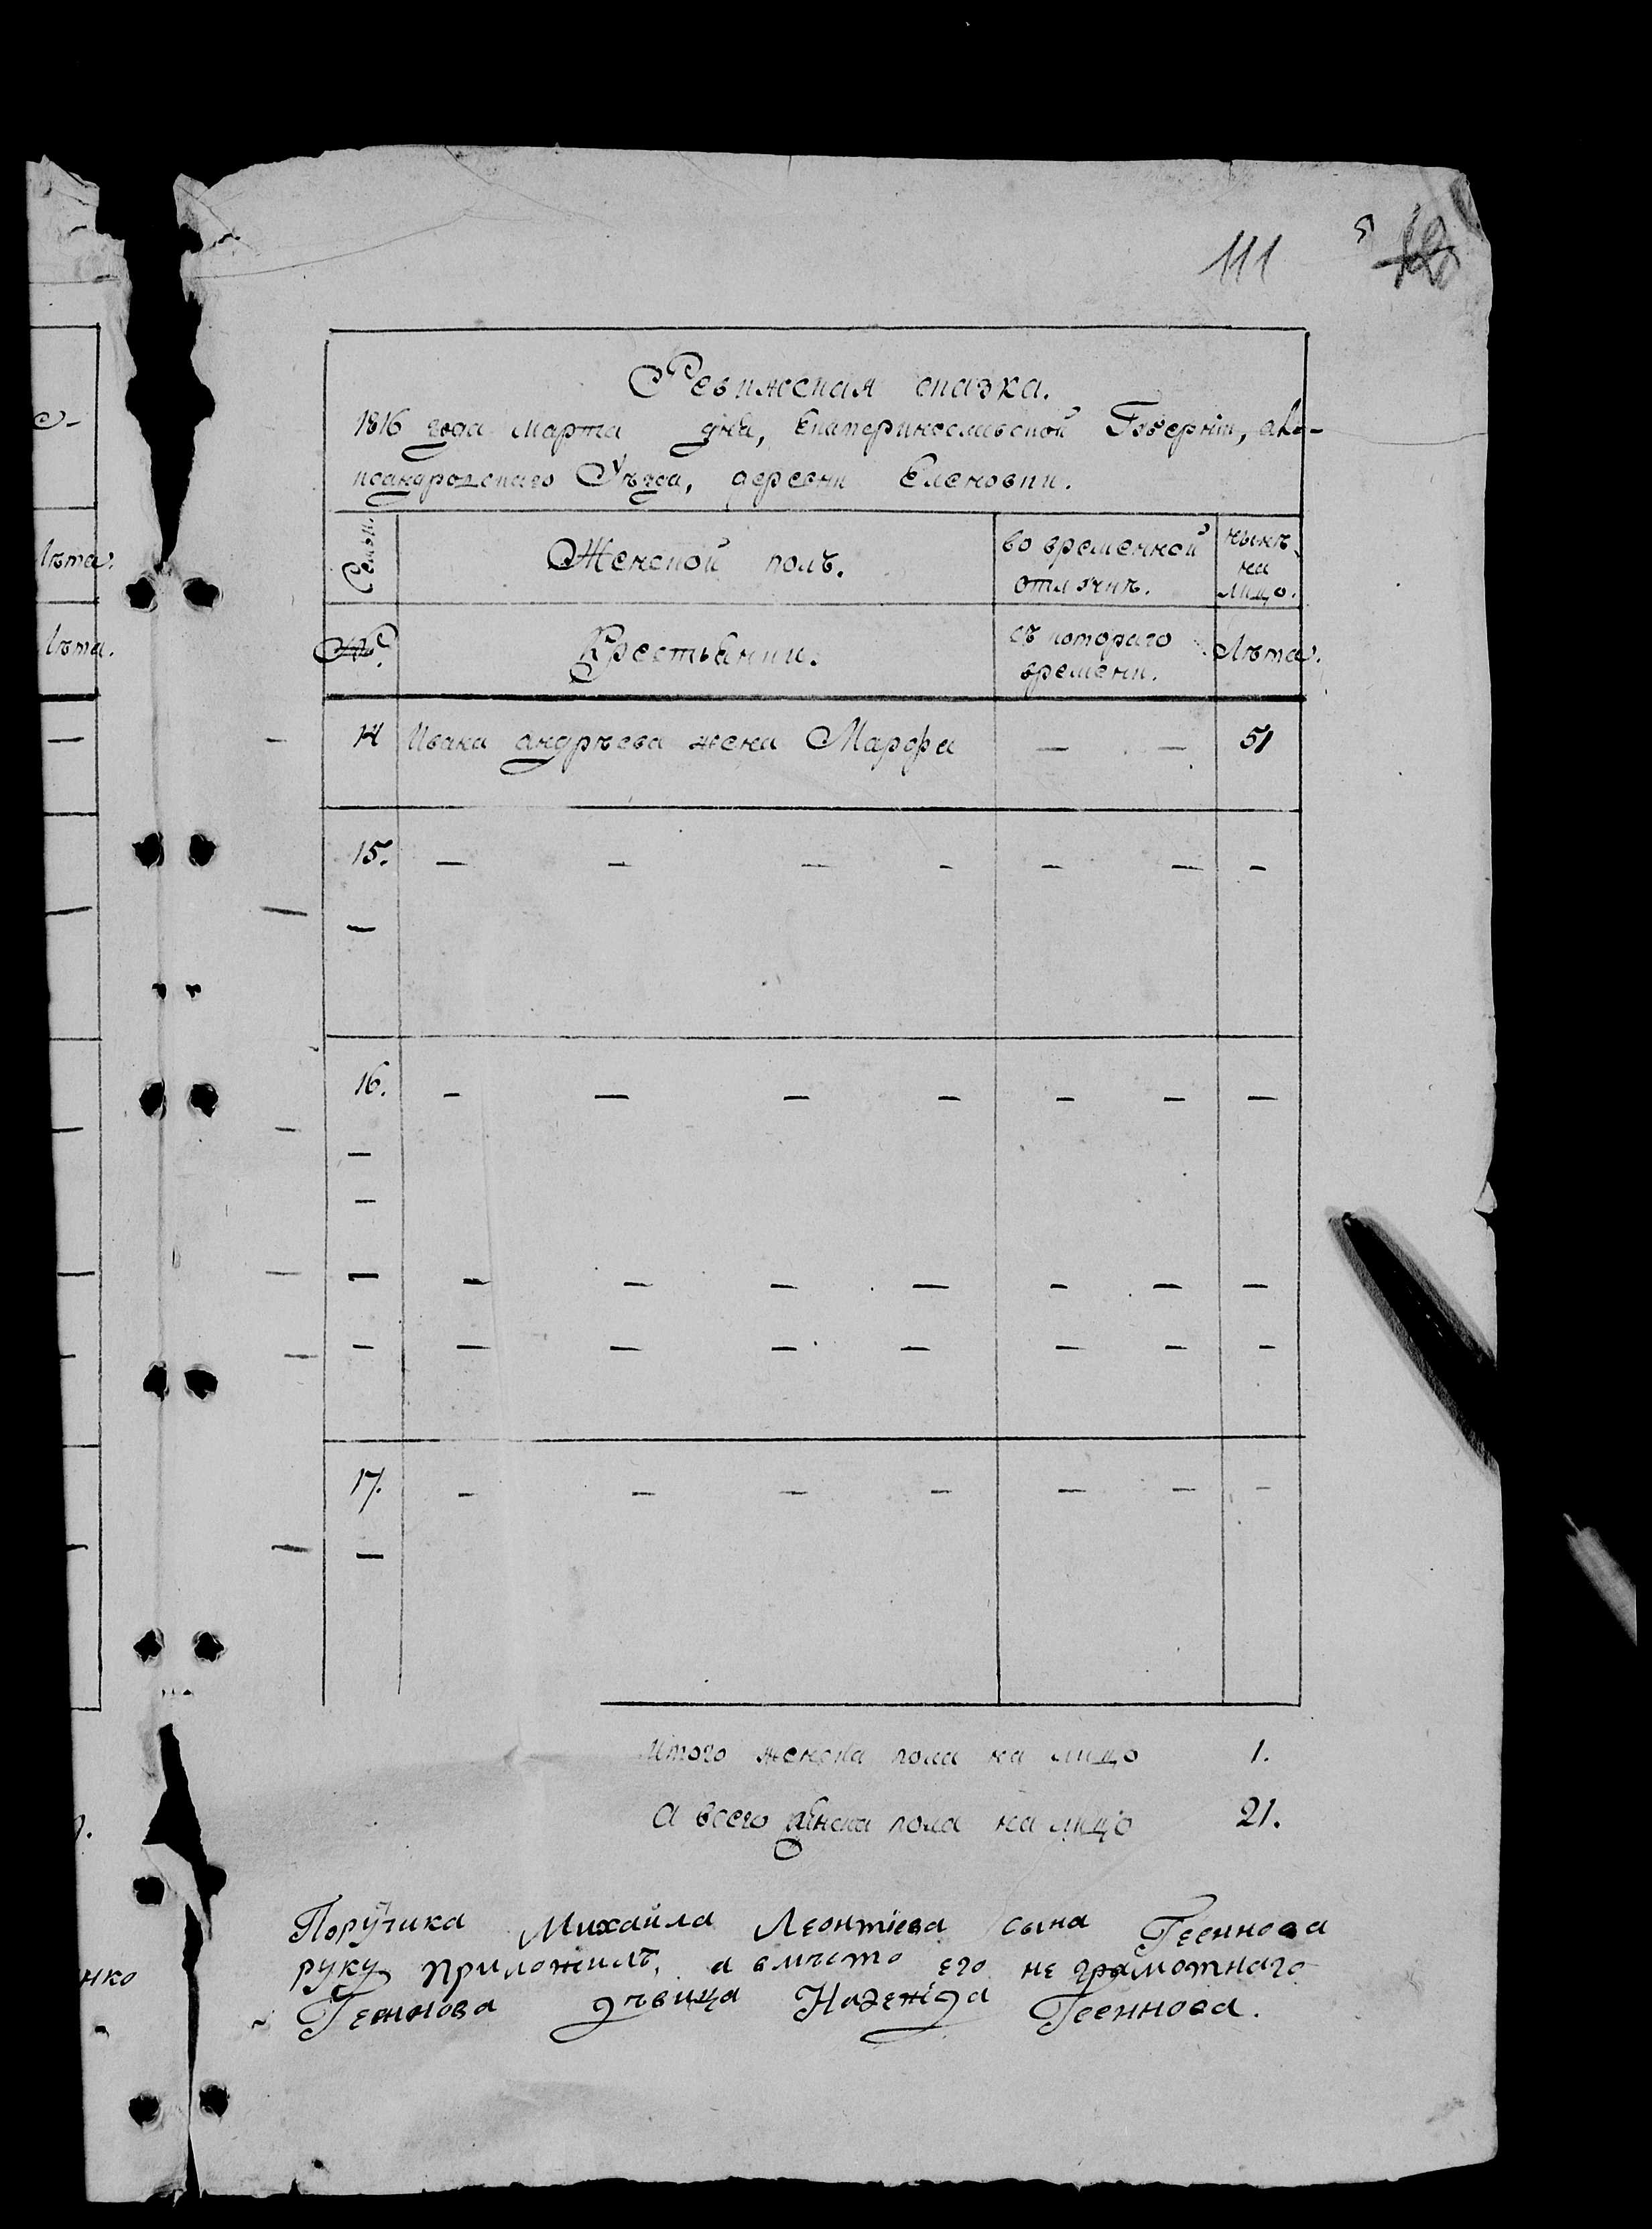 лѣта.
лѣта.
нко
111
5
Ревижская сказка.
1816 года марта дня, Екатеринославской Губерніи, але-
ксандровскаго Уѣзда, деревни Еленовки.
Семьи.
Женской полъ.
во временной
отлучкѣ.
нынѣ
на
лицо.
№
Крестьянки.
съ котораго
времени.
Лѣта.
14 Ивана андрѣева жена Марфа — — 51
15. — — — — — — —
—
16. — — — — — — —
—
—
— — — — — — — —
— — — — — — — —
17. — — — — — — —
—
Итого женска пола на лицо 1.
А всего женска пола на лицо 21.
Порутчика Михайла Леонтіева сына
руку приложилъ, а вмѣсто его не грамотнаго
дѣвица Надежда